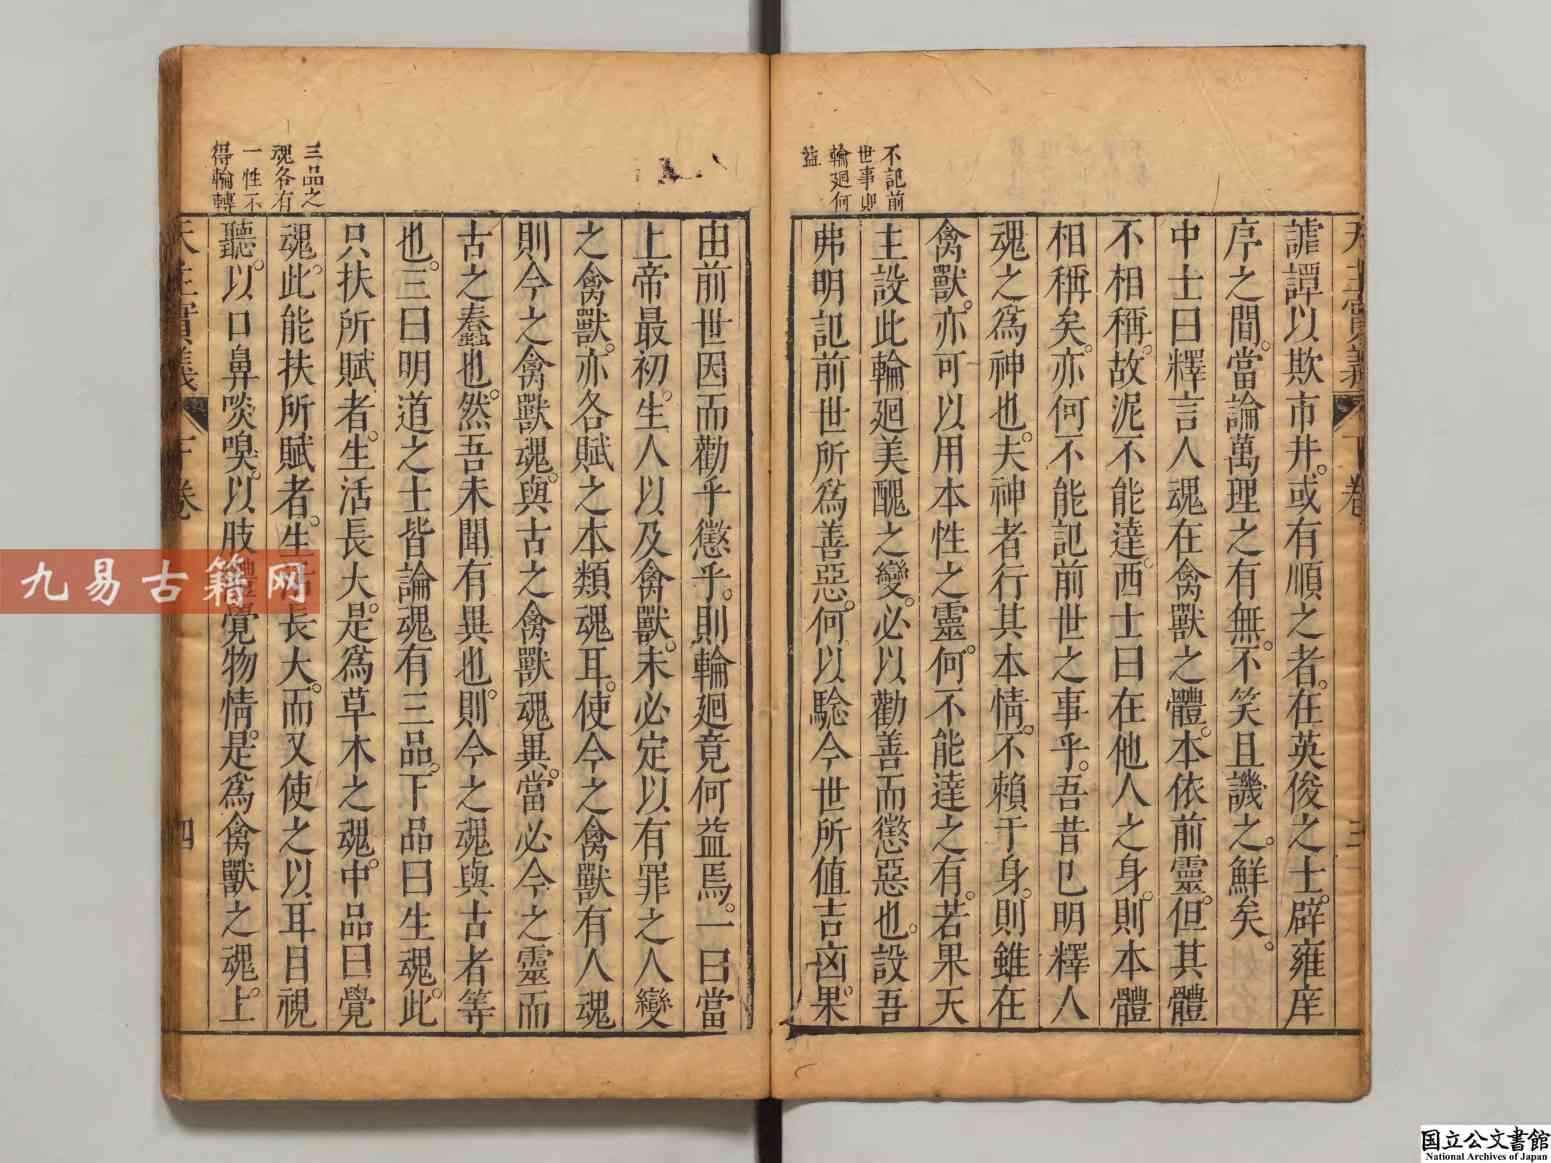 天主實義
下卷
三
不記前
世事則
輪廻何
益
謔譚以欺市井。或有順之者。在英俊之士。辟雍庠
序之間。當論萬理之有無。不笑且譏之。鮮矣。
中士曰釋言人魂在禽獸之體。本依前靈。但其體
不相稱。故泥不能達。西士曰在他人之身。則本體
相稱矣。亦何不能記前世之事乎。吾昔已明釋人
魂之爲神也。夫神者行其本情。不賴于身。則雖在
禽獸。亦可以用本性之靈。何不能達之有。若果天
主設此輪廻美醜之變。必以勸善而懲惡也。設吾
弗明記前世所爲善惡。何以騐今世所値吉凶。果
由前世因而勸乎懲乎。則輪廻竟何益焉。一曰當
上帝最初。生人以及禽獸。未必定以有罪之人變
之禽獸。亦各賦之本類魂耳。使今之禽獸有人魂
則今之禽獸魂。與古之禽獸魂異。當必今之靈而
古之蠢也。然吾未聞有異也。則今之魂與古者等
也。三曰明道之士皆論魂有三品。下品曰生魂。此
只扶所賦者。生活長大。是爲草木之魂。中品曰覺
魂。此能扶所賦者。生活長大。而又使之以耳目視
聽。以口鼻啖嗅。以肢體覺物情。是爲禽獸之魂。上
三品之
魂各有
一性不
得輪轉
天主實義
下卷
四
九易古籍网
国立公文書館
National Archives of Japan